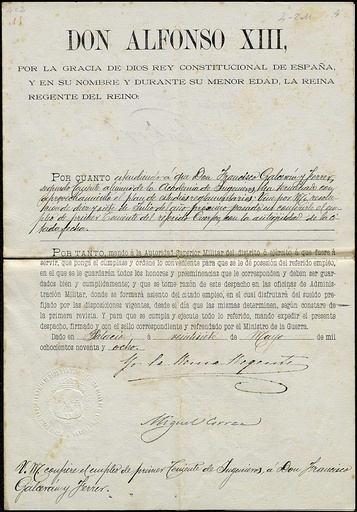 DON ALFONSO XIII,
POR LA GRACIA DE DIOS REY CONSTITUCIONAL DE ESPAÑA,
Y EN SU NOMBRE Y DURANTE SU MENOR EDAD, LA REINA
REGENTE DEL REINO:
POR CUANTO atendiendo a que Don Francisco Galcerán y Ferrer,
segundo Teniente alumno de la Academia de Ingenieros, ha terminado con
aprovechamiento el plan de estudios reglamentarios; Vine por Mi
de Julio del año proximo pasado en conferirle el em-
pleo de primer Teniente del referido Cuerpo, con la antigüedad de la ci-
tada fecha.
POR TANTO, mando á la Autoridad Superior Militar del distrito ó ejército á que fuere á
servir, que ponga el cúmplase y órdenes lo conveniente para que se le dé posesión del referido empleo,
en el que se le guardarán todos los honores y preeminencias que le correspondan y deben ser guar-
dados bien y cumplidamente; y que se tome razón de este despacho en las oficinas de Adminis-
tración Militar, donde se formará asiento del citado empleo, en el cual disfrutará del sueldo pre-
fijado por las disposiciones vigentes, desde el día que las mismas determinen, según constare de
la primera revista. Y para que se cumpla y ejecute todo lo referido, mando expedir el presente
despacho, firmado y con el sello correspondiente y refrendado por el Ministro de la Guerra.
Dado en Palacio á veintisiete de Mayo de mil
ochocientos noventa y ocho.
Yo la Reina Regente
Miguel Correa
V. M. confiere el empleo de primer Teniente de Ingenieros, a Don Francisco
Galcerán y Ferrer.